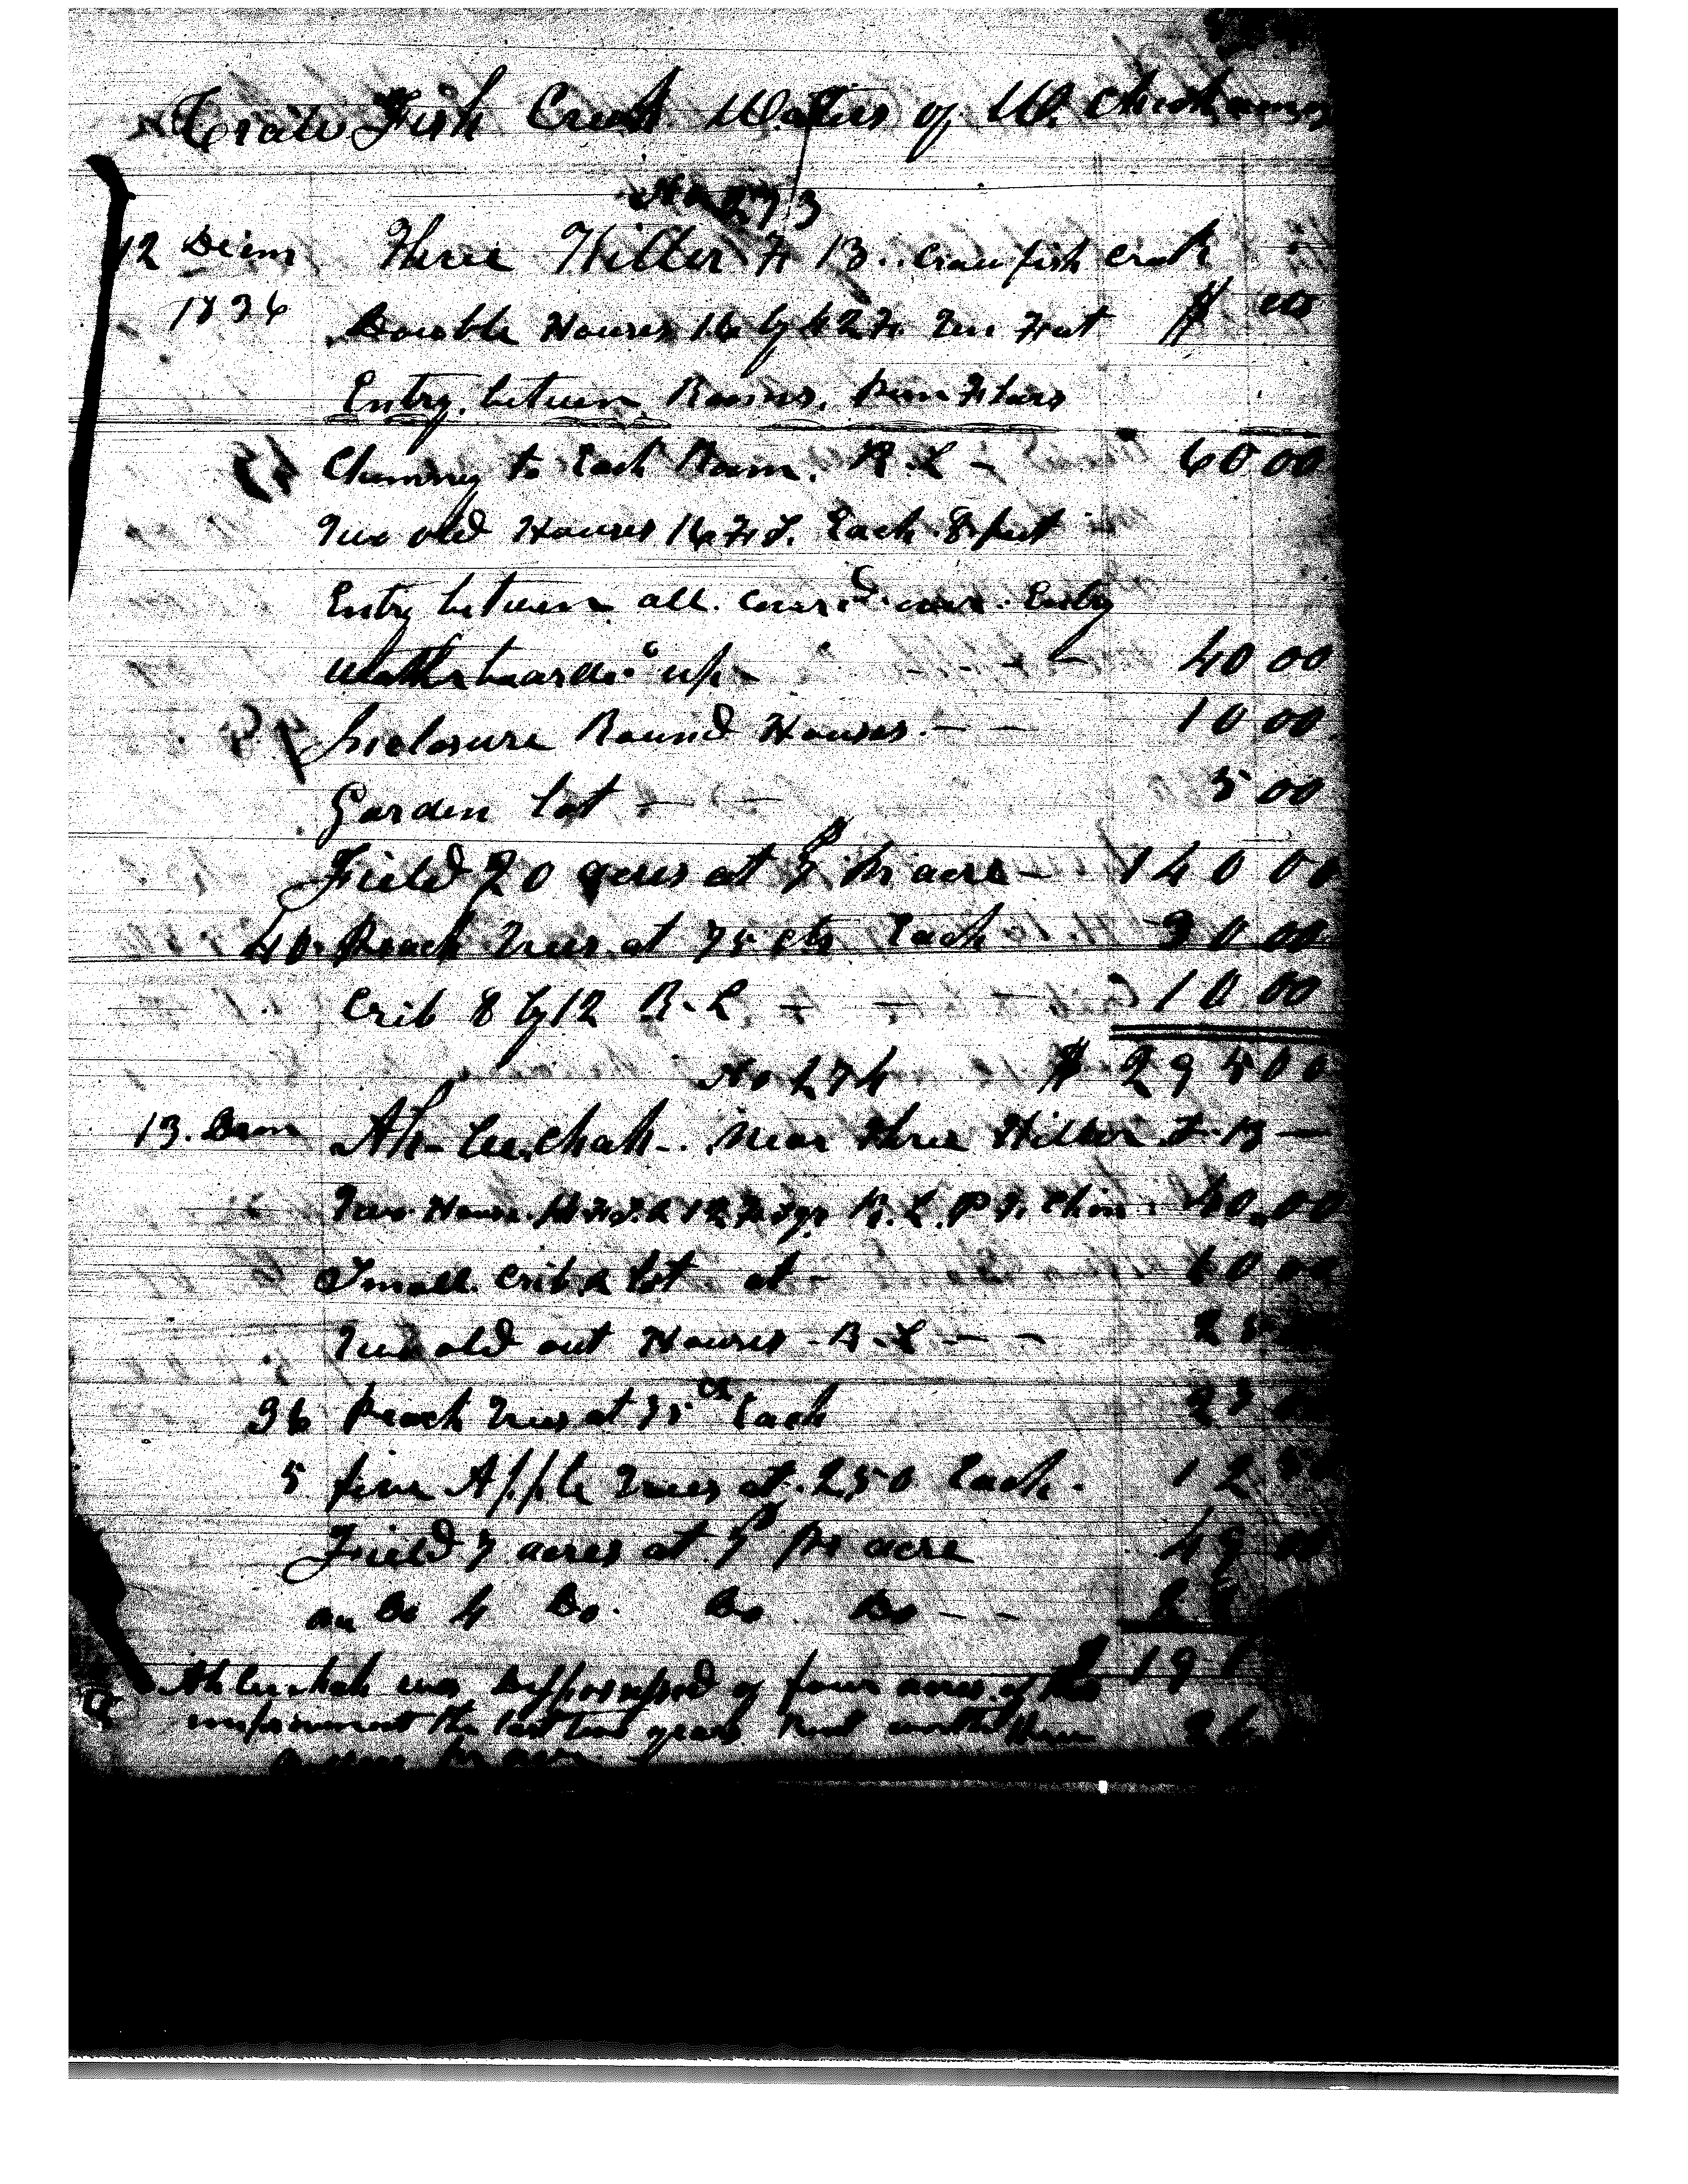 Craw Fish Creek Waters of W. Chickamauga
No 273
12 Decm Three Killer F B. Crawfish Creek
1836 Double Houses 16 by 42 Ft Ten Feet $ cts
Entry between Rooms.
Chimney to Each Room. R. L - 60 00
Two old Houses 16 Ft S. Each 8 feet
Entry between all cover.d over. Entry
Weatherboard.d up - 40 00
Inclosure Round Houses - - 10 00
Garden lot - - 5 00
Field 20 acres at $7 pr acre - 140 00
40 Peach Trees at 75 cts Each 30 00
Crib 8 by 12 R. L - - - 10 00
No 274 $ 295 00
13. Decm Ah-lee-chah - near Three Killer F. B -
Two House 12 Ft Sqr R. L. Chim 40.00
Small Crib & lot at - 10 00
Two old out Houses - R. L - - 2
36 Peach Trees at Each
5 fine Apple Trees at 2,50 Each. 12 50
Field 7 acres at $7 pr acre 49 00
an Do 4 Do. Do Do - -
Ah lee chah was Dispossessed of four acres of this $ 19
improvement the last two years Rent worth three